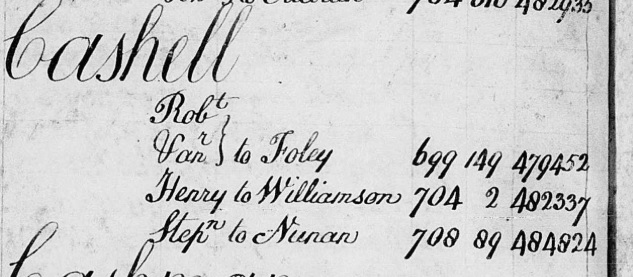 704 310 482935
Cashell
Robt
Vanr } to Foley 699 149 479452
Henry to Williamson 704 2 482337
Stepn to Nunan 708 89 484824